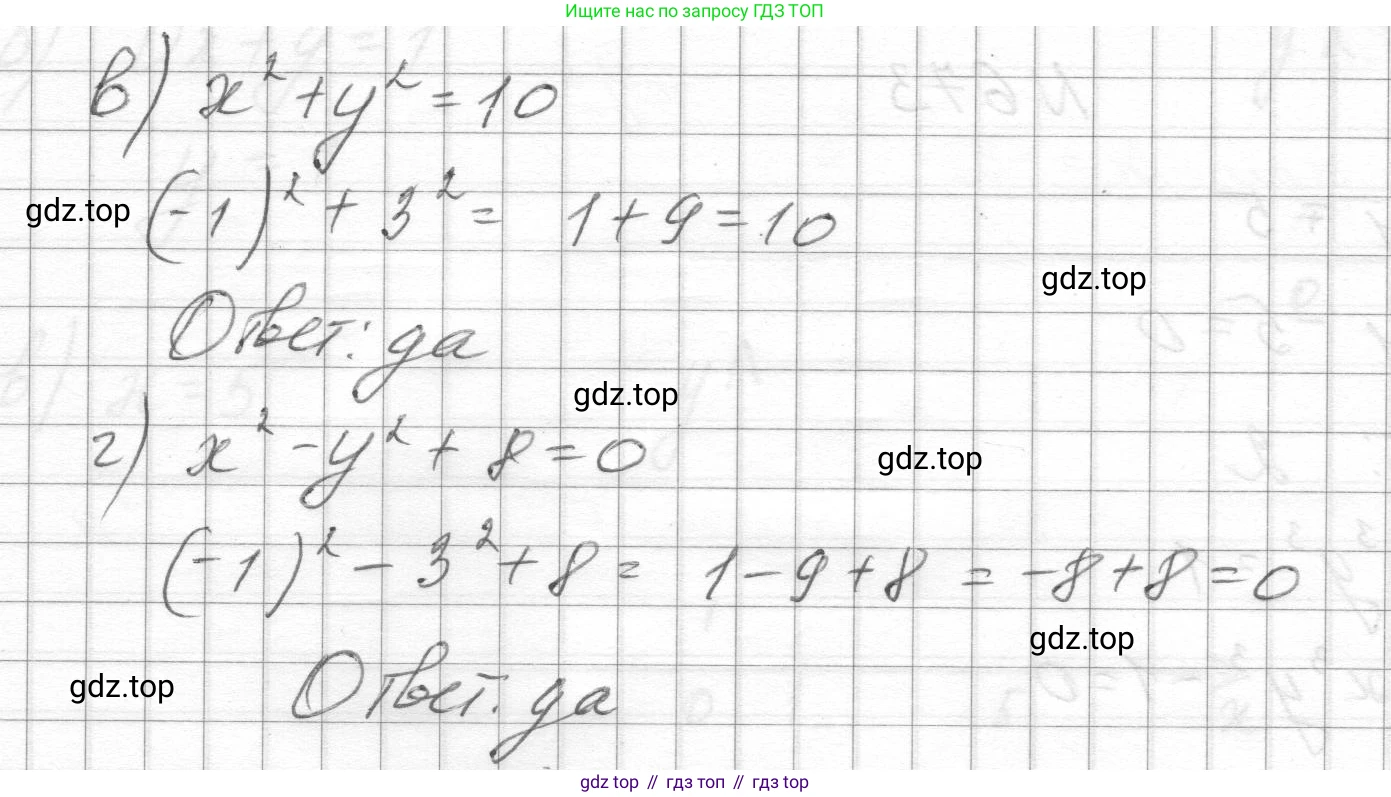 Ищите нас по запросу ГДЗ ТОП
в) x² + y² = 10
gdz.top (-1)² + 3² = 1 + 9 = 10
gdz.top
Ответ: да
gdz.top
г) x² - y² + 8 = 0
gdz.top
(-1)² - 3² + 8 = 1 - 9 + 8 = -8 + 8 = 0
gdz.top
gdz.top Ответ: да
gdz top // гдз топ // гдз top